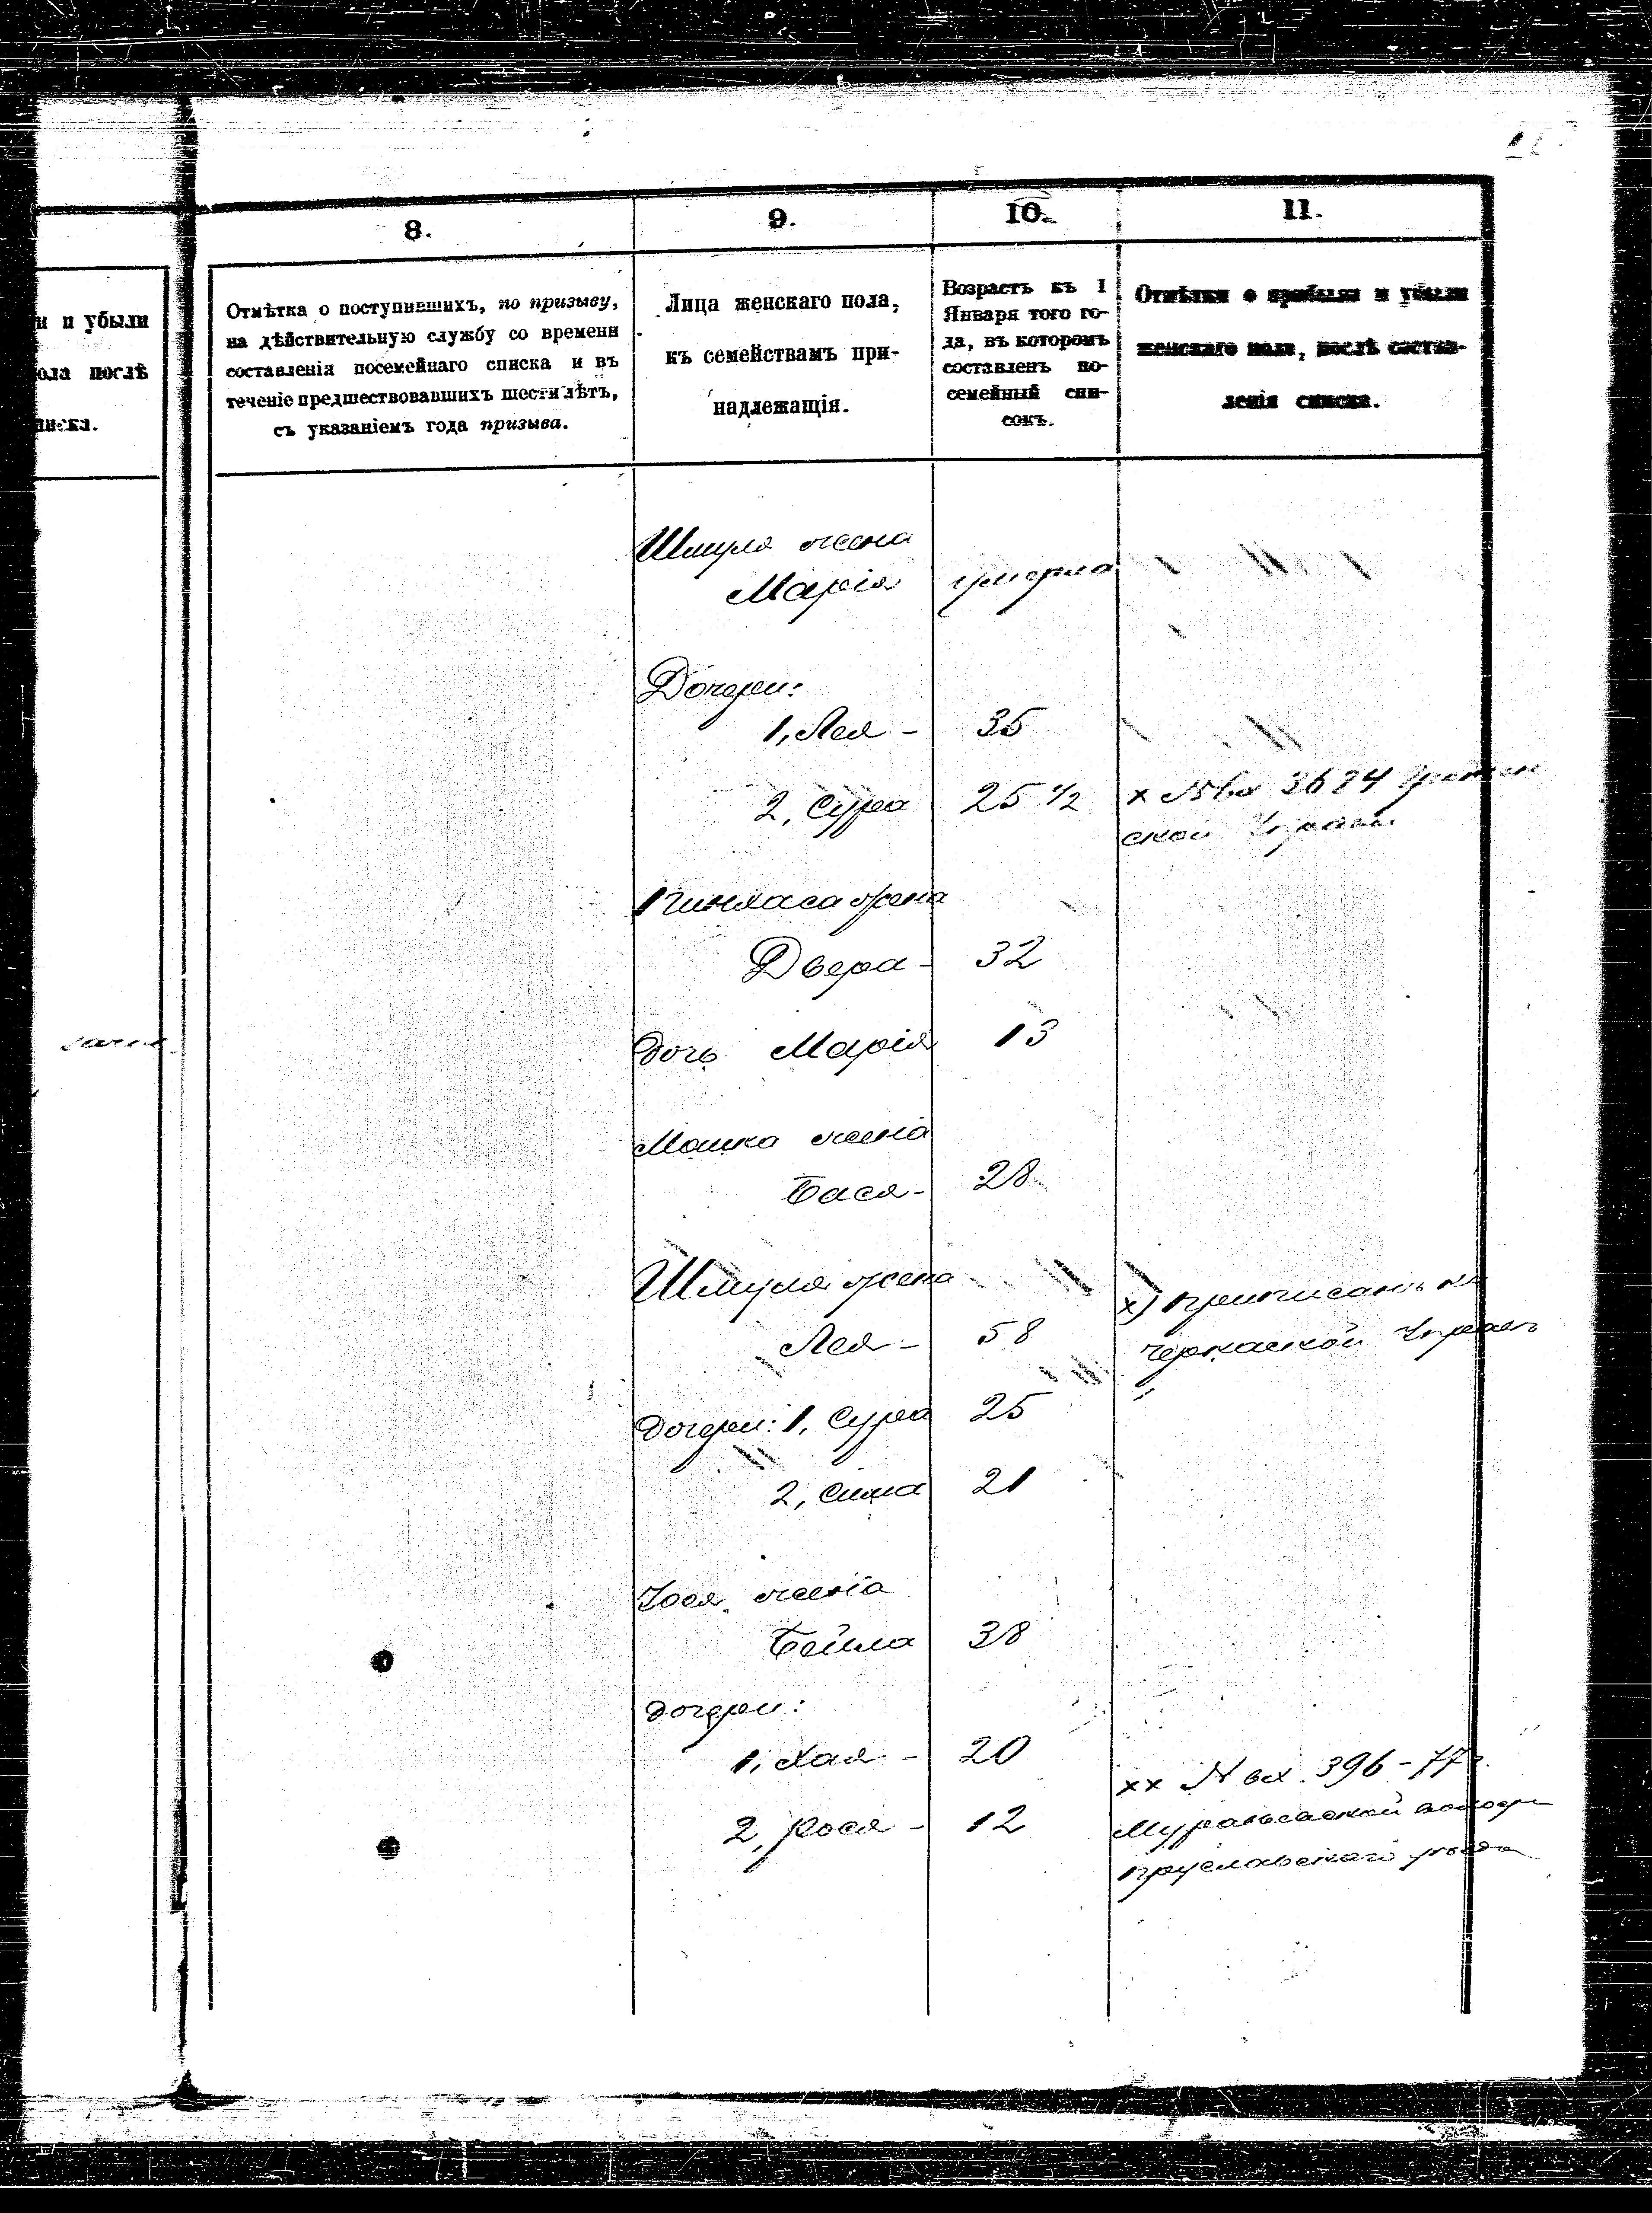 8.
9.
10.
11.
и и убыли
ола послѣ
писка.
Отмѣтка о поступившихъ, по призыву,
на дѣйствительную службу со времени
составленія посемейнаго списка и въ
теченіе предшествовавшихъ шести лѣтъ,
съ указаніемъ года призыва.
Лица женскаго пола,
къ семействамъ при-
надлежащія.
Возрастъ къ 1
Января того го-
да, въ которомъ
составленъ по-
семейный спи-
сокъ.
Отмѣтки о прибыли и убыли
женскаго пола, послѣ состав-
ленія списка.
Шмуля жена
Марія умерла
Дочери:
1, Лея - 35
2, Сура 25 1/2 х № вх 3684
ской Управы
Пинхаса жена
Двера - 32
дочь Марія 13
Мошко жена
Бася - 28
Шмуля жена
х) приписанъ
Лея - 58
Черкаской Управы
дочери: 1, Сура 25
2, Сима 21
Іося жена
Бейла 38
дочери:
1, Хая - 20
хх № вх. 396 - 77 г.
2, Рося - 12
волости
уѣзда